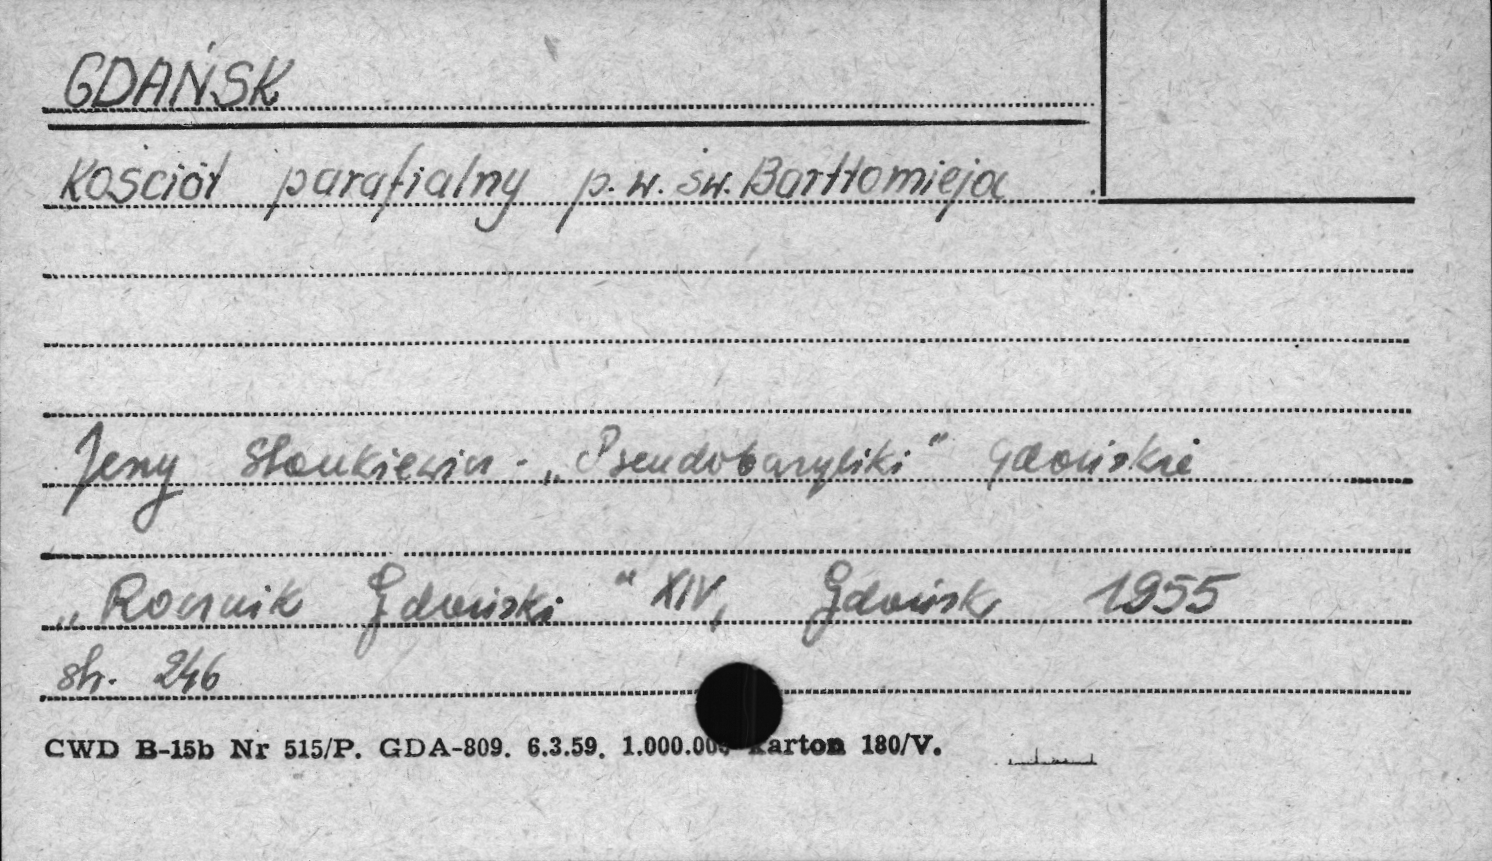 GDAŃSK
Kościół parafialny p.w. św. Bartłomieja
Jerzy Stankiewicz - „Pseudobazyliki" gdańskie
„Rocznik Gdański" XIV, Gdańsk 1955
str. 246
CWD B-15b Nr 515/P. GDA-809. 6.3.59. 1.000.000 Karton 180/V.